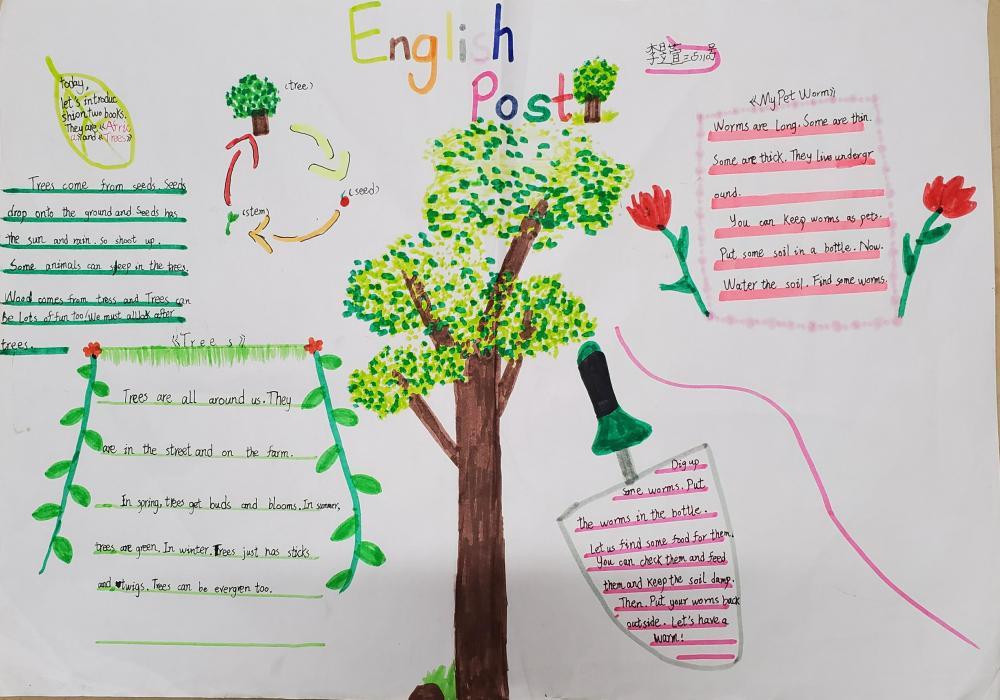 English
Post
today,
let's introduc
shion two books.
They are 《Afric
a》 and 《Trees》
(tree)
(seed)
(stem)
Trees come from seeds seeds
drop onto the ground and seeds has
the sun and rain. so shoot up.
Some animals can sleep in the trees.
Wood comes from tress and Trees can
be Lots of fun too! We must all look after
trees.
《Trees》
Trees are all around us. They
are in the street and on the farm.
In spring, trees get buds and blooms. In summer,
trees are green. In winter. Trees just has sticks
and twigs. Trees can be evergren too.
《My Pet Worm》
Worms are Long. Some are thin.
Some are thick. They live undergr
ound.
You can keep worms as pets.
Put some soil in a bottle. Now.
Water the soil. Find some worms.
Dig up
some worms. Put
the worms in the bottle.
Let us find some food for them.
You can check them and feed
them and keep the soil damp.
Then. Put your worms back
outside. Let's have a
warm!